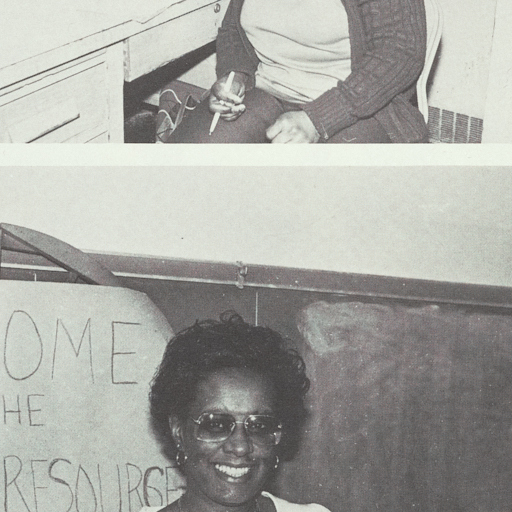 OME
HE
RESOURGE